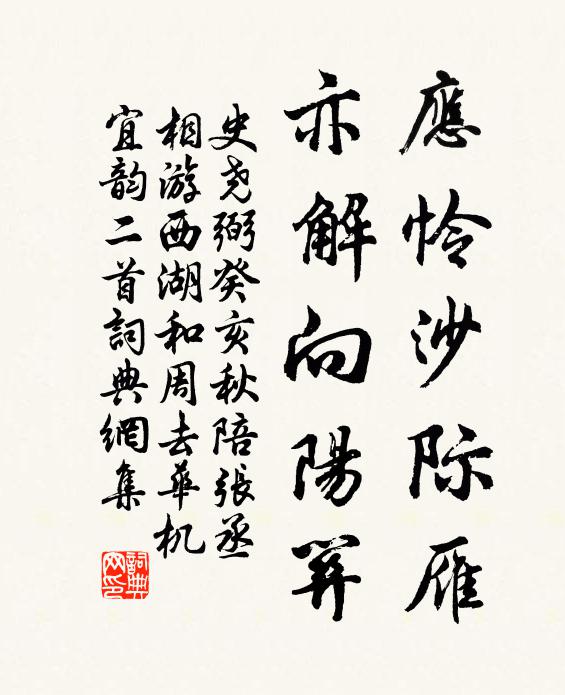 應怜沙际雁
亦解向陽
史尧弼癸亥秋陪張丞
相游西湖和周去華机
宜韵二首詞典網集
詞典
网印